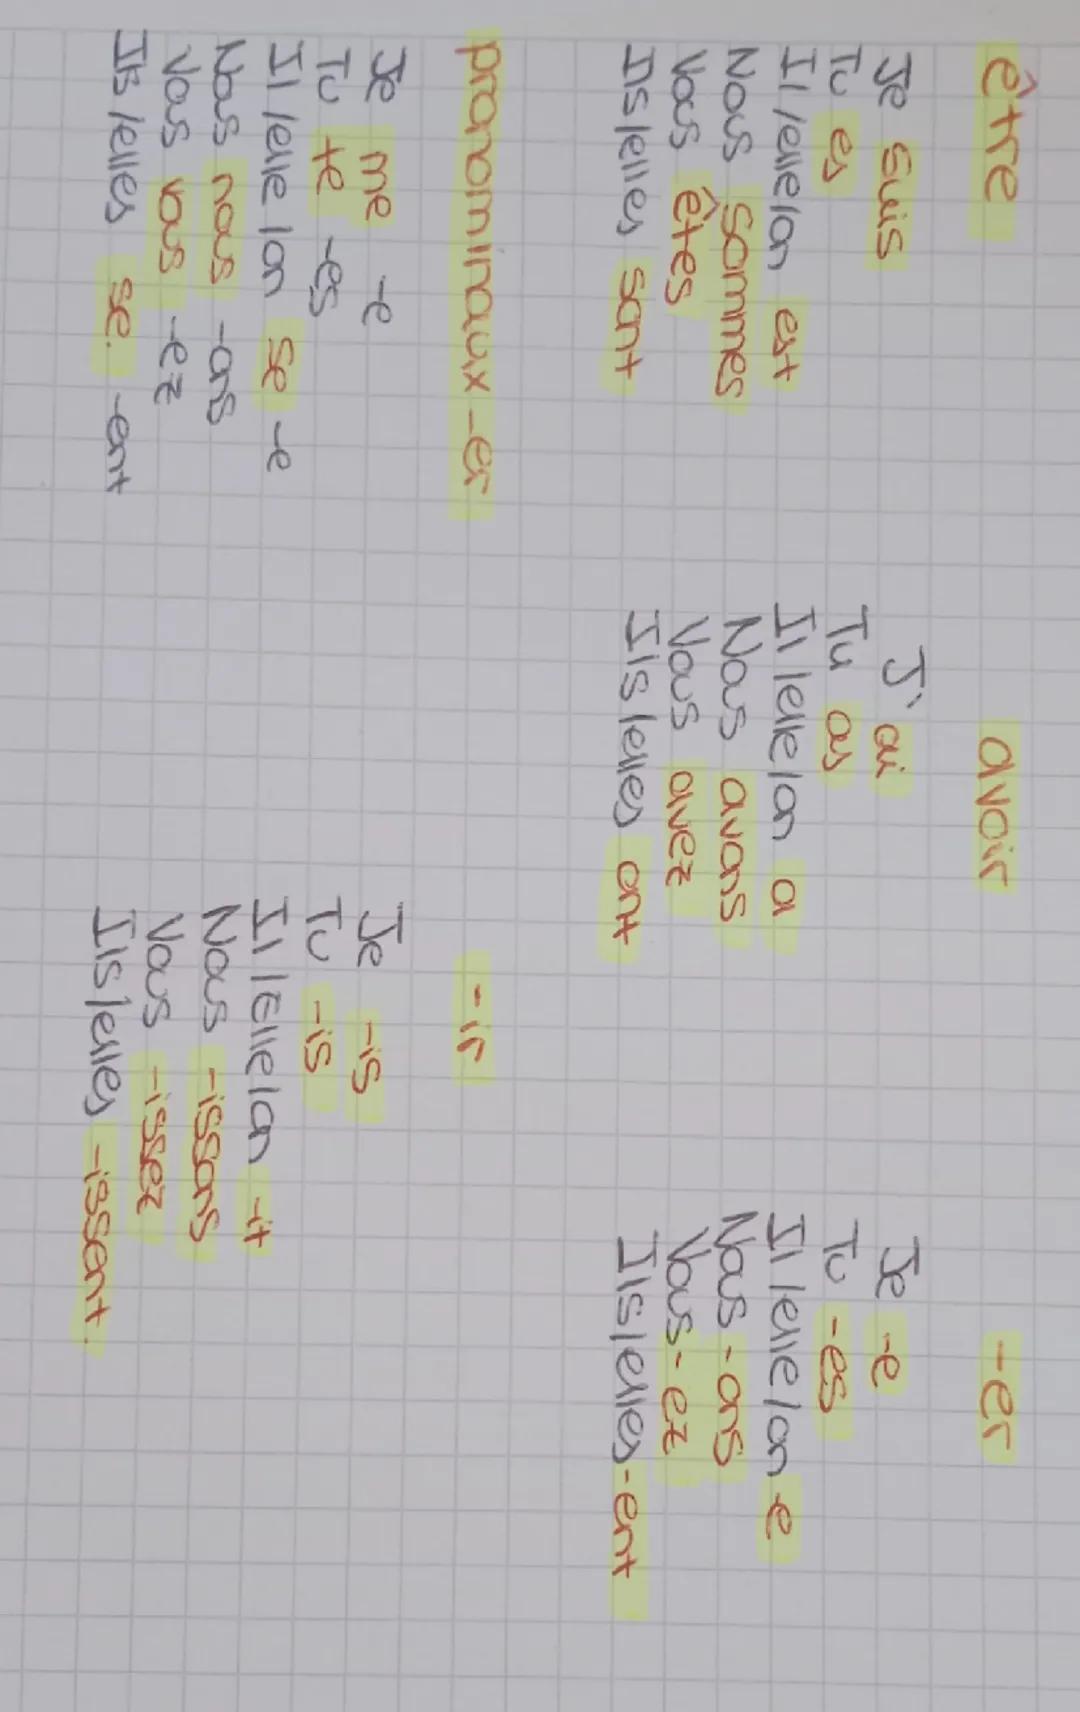 être
Je suis
Tu es
Il/elle/on est
Nous sommes
Vous êtes
Ils/elles sont
avoir
J' ai
Tu as
Il/elle/on a
Nous avons
Vous avez
Ils/elles ont
-er
Je -e
Tu -es
Il/elle/on -e
Nous -ons
Vous -ez
Ils/elles -ent
pronominaux -er
Je me -e
Tu te -es
Il/elle/on se -e
Nous nous -ons
Vous vous -ez
Ils/elles se. -ent
-ir
Je -is
Tu -is
Il/Elle/on -it
Nous -issons
Vous -issez
Ils/elles -issent.